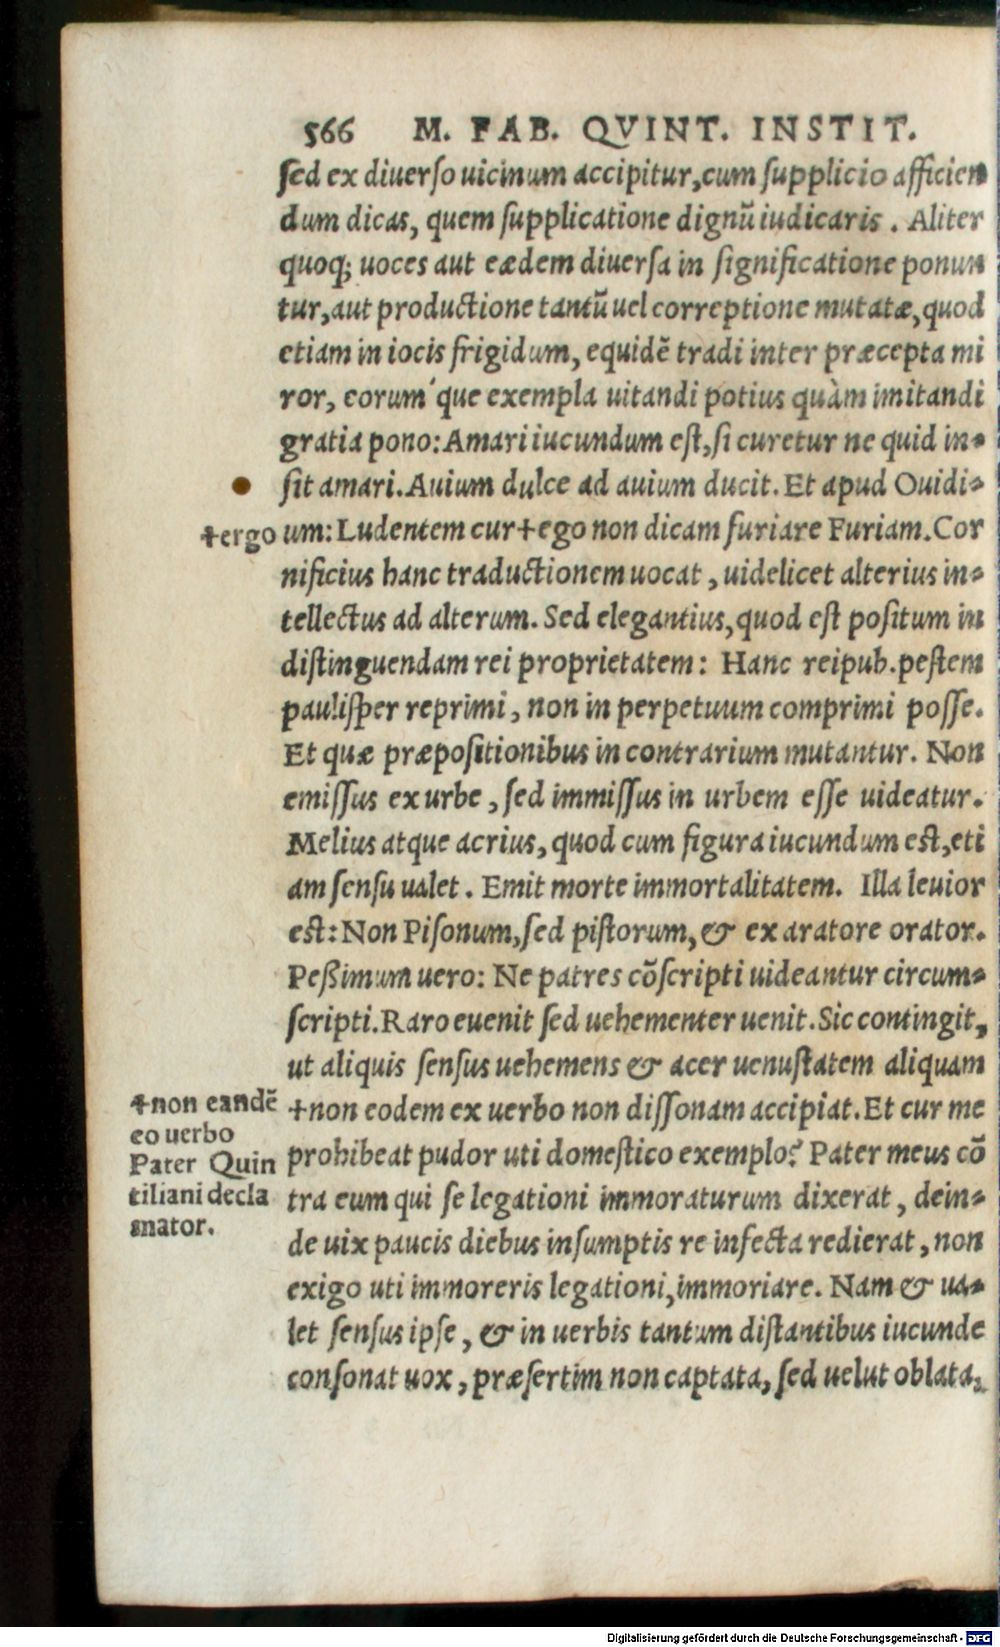 566 M. FAB. QVINT. INSTIT.
sed ex diuerso uicinum accipitur, cum supplicio afficien
dum dicas, quem supplicatione dignũ iudicaris. Aliter
quoq; uoces aut eædem diuersa in significatione ponun
tur, aut productione tantũ uel correptione mutatæ, quod
etiam in iocis frigidum, equidẽ tradi inter præcepta mi
ror, eorum´que exempla uitandi potius quàm imitandi
gratia pono: Amari iucundum est, si curetur ne quid in-
sit amari. Auium dulce ad auium ducit. Et apud Ouidi-
✝ergo um: Ludentem cur✝ego non dicam furiare Furiam. Cor
nificius hanc traductionem uocat, uidelicet alterius in-
tellectus ad alterum. Sed elegantius, quod est positum in
distinguendam rei proprietatem: Hanc reipub. pestem
paulisper reprimi, non in perpetuum comprimi posse.
Et quæ præpositionibus in contrarium mutantur. Non
emissus ex urbe, sed immissus in urbem esse uideatur.
Melius atque acrius, quod cum figura iucundum est, eti
am sensu ualet. Emit morte immortalitatem. Illa leuior
est: Non Pisonum, sed pistorum, & ex aratore orator.
Peßimum uero: Ne patres cõscripti uideantur circum-
scripti. Raro euenit sed uehementer uenit. Sic contingit,
ut aliquis sensus uehemens & acer uenustatem aliquam
✝non eodem ex uerbo non dissonam accipiat. Et cur me
prohibeat pudor uti domestico exemplo? Pater meus cõ
tra eum qui se legationi immoraturum dixerat, dein-
de uix paucis diebus insumptis re infecta redierat, non
exigo uti immoreris legationi, immoriare. Nam & ua-
let sensus ipse, & in uerbis tantum distantibus iucunde
consonat uox, præsertim non captata, sed uelut oblata,
✝non eandẽ
eo uerbo
Pater Quin
tiliani decla
mator.
Digitalisierung gefördert durch die Deutsche Forschungsgemeinschaft - DFG